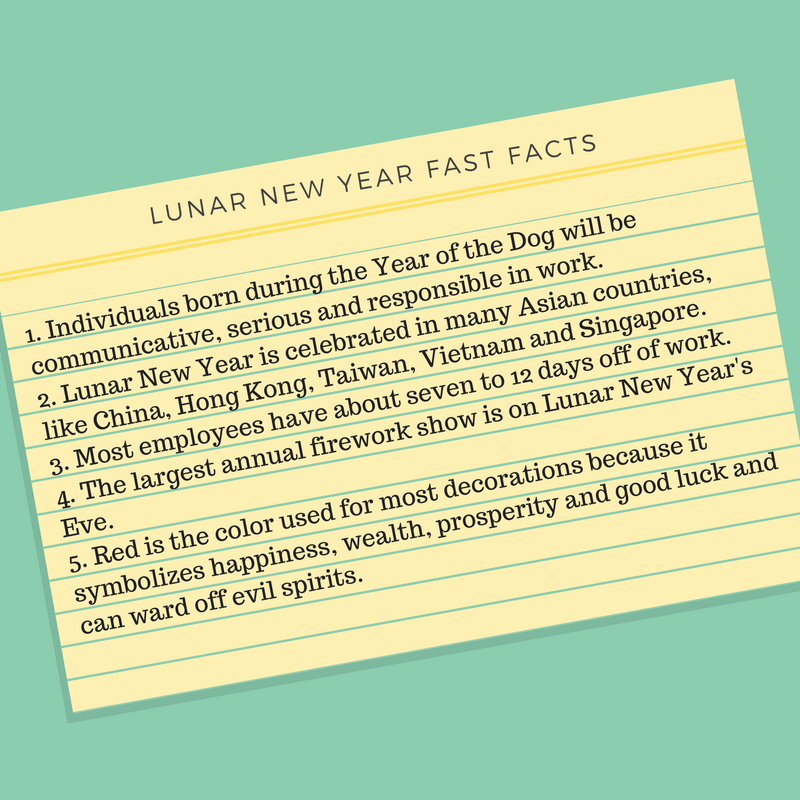 LUNAR NEW YEAR FAST FACTS
1. Individuals born during the Year of the Dog will be
communicative, serious and responsible in work.
2. Lunar New Year is celebrated in many Asian countries,
like China, Hong Kong, Taiwan, Vietnam and Singapore.
3. Most employees have about seven to 12 days off of work.
4. The largest annual firework show is on Lunar New Year's
Eve.
5. Red is the color used for most decorations because it
symbolizes happiness, wealth, prosperity and good luck and
can ward off evil spirits.